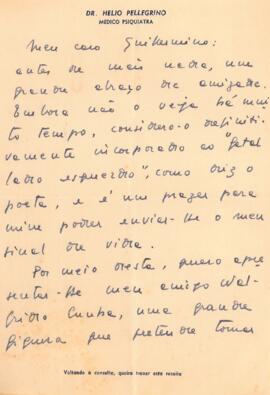 DR. HELIO PELLEGRINO
MÉDICO PSIQUIATRA
Meu caro Guilhermino:
antes de mais nada, um
grande abraço de amizade.
Embora não o veja há mui-
to tempo, considero-o definiti-
vamente incorporado ao "fatal
lado esquerdo", como diz o
poeta, e é um prazer para
mim poder enviar-lhe o meu
sinal de vida.
Por meio desta, quero apre-
sentar-lhe meu amigo Wal-
grido Cunha, uma grande
figura que pretende tomar
Voltando à consulta, queira trazer esta receita